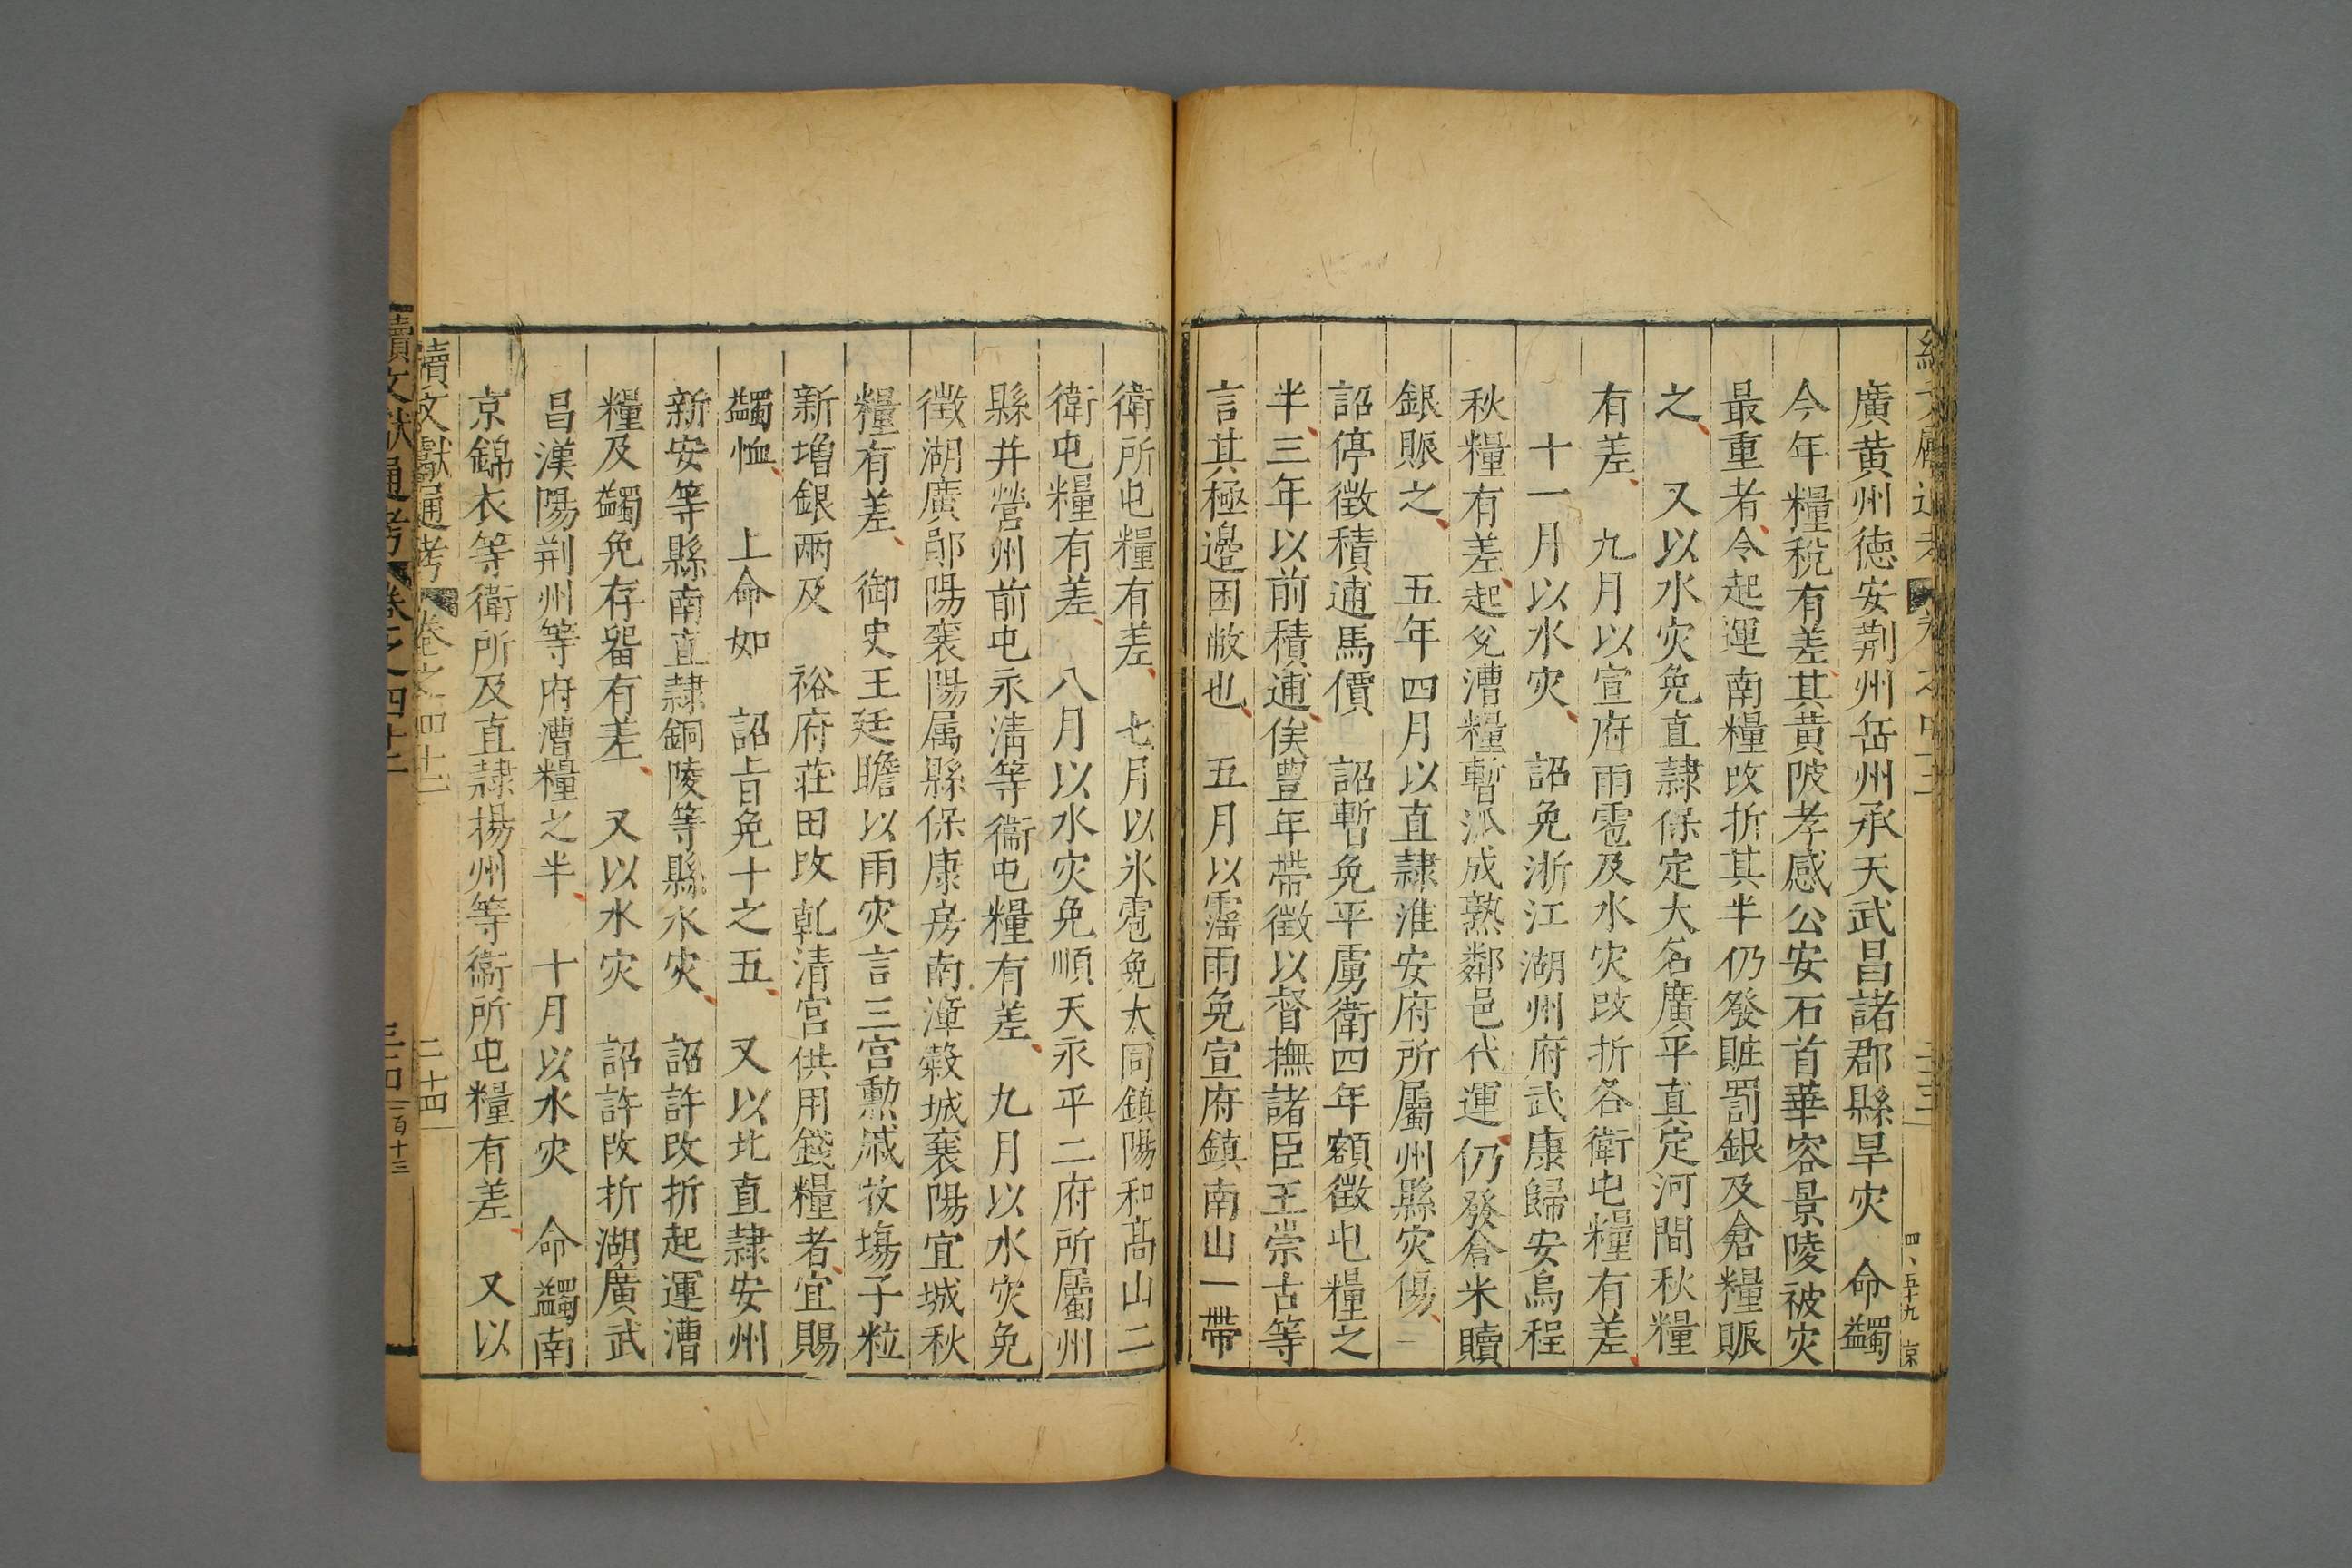 廣黄州徳安荆州岳州承天武昌諸郡縣旱灾　命蠲
今年糧稅有差其黄陂孝感公安石首華容景陵被灾
最重者令起運南糧改折其半仍發賍罰銀及倉糧賑
之　又以水灾免直隷保定大名廣平真定河間秋糧
有差　九月以宣府雨雹及水灾改折各衛屯糧有差
十一月以水灾　詔免浙江湖州府武康歸安烏程
秋糧有差起兌漕糧暫派成熟鄰邑代運仍發倉米贖
銀賑之　五年四月以直隷淮安府所屬州縣灾傷
詔停徵積逋馬價　詔暫免平虜衛四年額徵屯糧之
半三年以前積逋俟豊年帶徵以督撫諸臣王崇古等
言其極邊困敝也　五月以霪雨免宣府鎮南山一帶
衛所屯糧有差　七月以氷雹免大同鎮陽和髙山二
衛屯糧有差　八月以水灾免順天永平二府所屬州
縣并營州前屯永淸等衞屯糧有差　九月以水灾免
徵湖廣鄖陽襄陽属縣保康房南漳榖城襄陽宜城秋
糧有差　御史王廷瞻以雨灾言三宫勲戚莊塲子粒
新增銀兩及　裕府莊田改乹清宫供用錢糧者宜賜
蠲恤　上命如　詔㫖免十之五　又以北直隷安州
新安等縣南直隷銅陵等縣水灾　詔許改折起運漕
糧及蠲免存畱有差　又以水灾　詔許改折湖廣武
昌漢陽荆州等府漕糧之半　十月以水灾　命蠲南
京錦衣等衛所及直隷揚州等衞所屯糧有差　又以
續文獻通考　卷之四十二　二十四